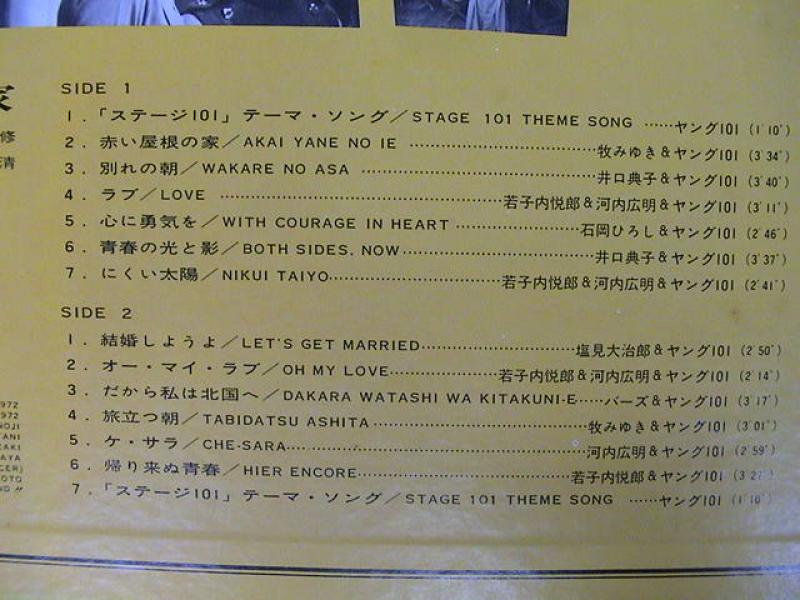 家
修
SIDE 1
1.「ステージ101」テーマ・ソング／STAGE 101 THEME SONG ……ヤング101 (1'10")
2. 赤い屋根の家／AKAI YANE NO IE ……牧みゆき＆ヤング101 (3'34")
清
3. 別れの朝／WAKARE NO ASA ……井口典子＆ヤング101 (3'40")
4. ラブ／LOVE ……若子内悦郎＆河内広明＆ヤング101 (3'11")
5. 心に勇気を／WITH COURAGE IN HEART ……石岡ひろし＆ヤング101 (2'46")
6. 青春の光と影／BOTH SIDES, NOW……井口典子＆ヤング101 (3'37")
7. にくい太陽／NIKUI TAIYO……若子内悦郎＆河内広明＆ヤング101 (2'41")
SIDE 2
1. 結婚しようよ／LET'S GET MARRIED……塩見大治郎＆ヤング101 (2'50")
2. オー・マイ・ラブ／OH MY LOVE……若子内悦郎＆河内広明＆ヤング101 (2'14")
3. だから私は北国へ／DAKARA WATASHI WA KITAKUNI-E……バーズ＆ヤング101 (3'17")
4. 旅立つ朝／TABIDATSU ASHITA……牧みゆき＆ヤング101 (3'01")
5. ケ・サラ／CHE-SARA……河内広明＆ヤング101 (2'59")
6. 帰り来ぬ青春／HIER ENCORE……若子内悦郎＆ヤング101
7.「ステージ101」テーマ・ソング／STAGE 101 THEME SONG ……ヤング101 (1'10")
1972
1972
NOJI
TANI
ZAKI
AYA
CER)
OTO